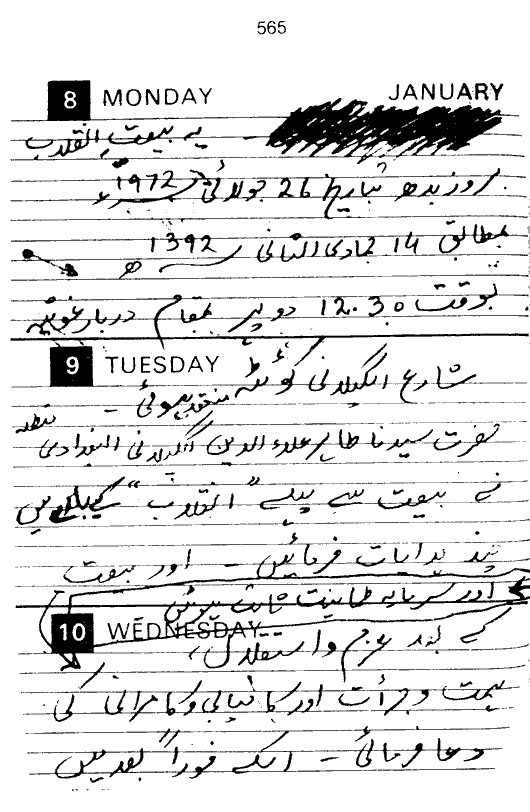 565
8 MONDAY JANUARY
یہ بیعتِ القلاب
بروز بدھ بتاریخ 26 جولائی 1972ء
بمطابق 14 جمادی الثانی 1392ھ
بوقت 12.30 دوپہر بمقام دربارِ غوثیہ
9 TUESDAY
شارع الگیلانی کوئٹہ منعقد ہوئی -
حضرت سیدنا طاہر علاء الدین الگیلانی البغدادی مدظلہ
نے بیعت سے پہلے "القلاب" کیلئے
چند ہدایات فرمائیں - اور بیعت
اور سرمایہ طمانیت ثابت ہوئیں
10 WEDNESDAY
کے بعد عزم و استقلال،
ہمت و جرأت اور کامیابی و کامرانی کی
دعا فرمائی - اسکے فوراً بعد میں